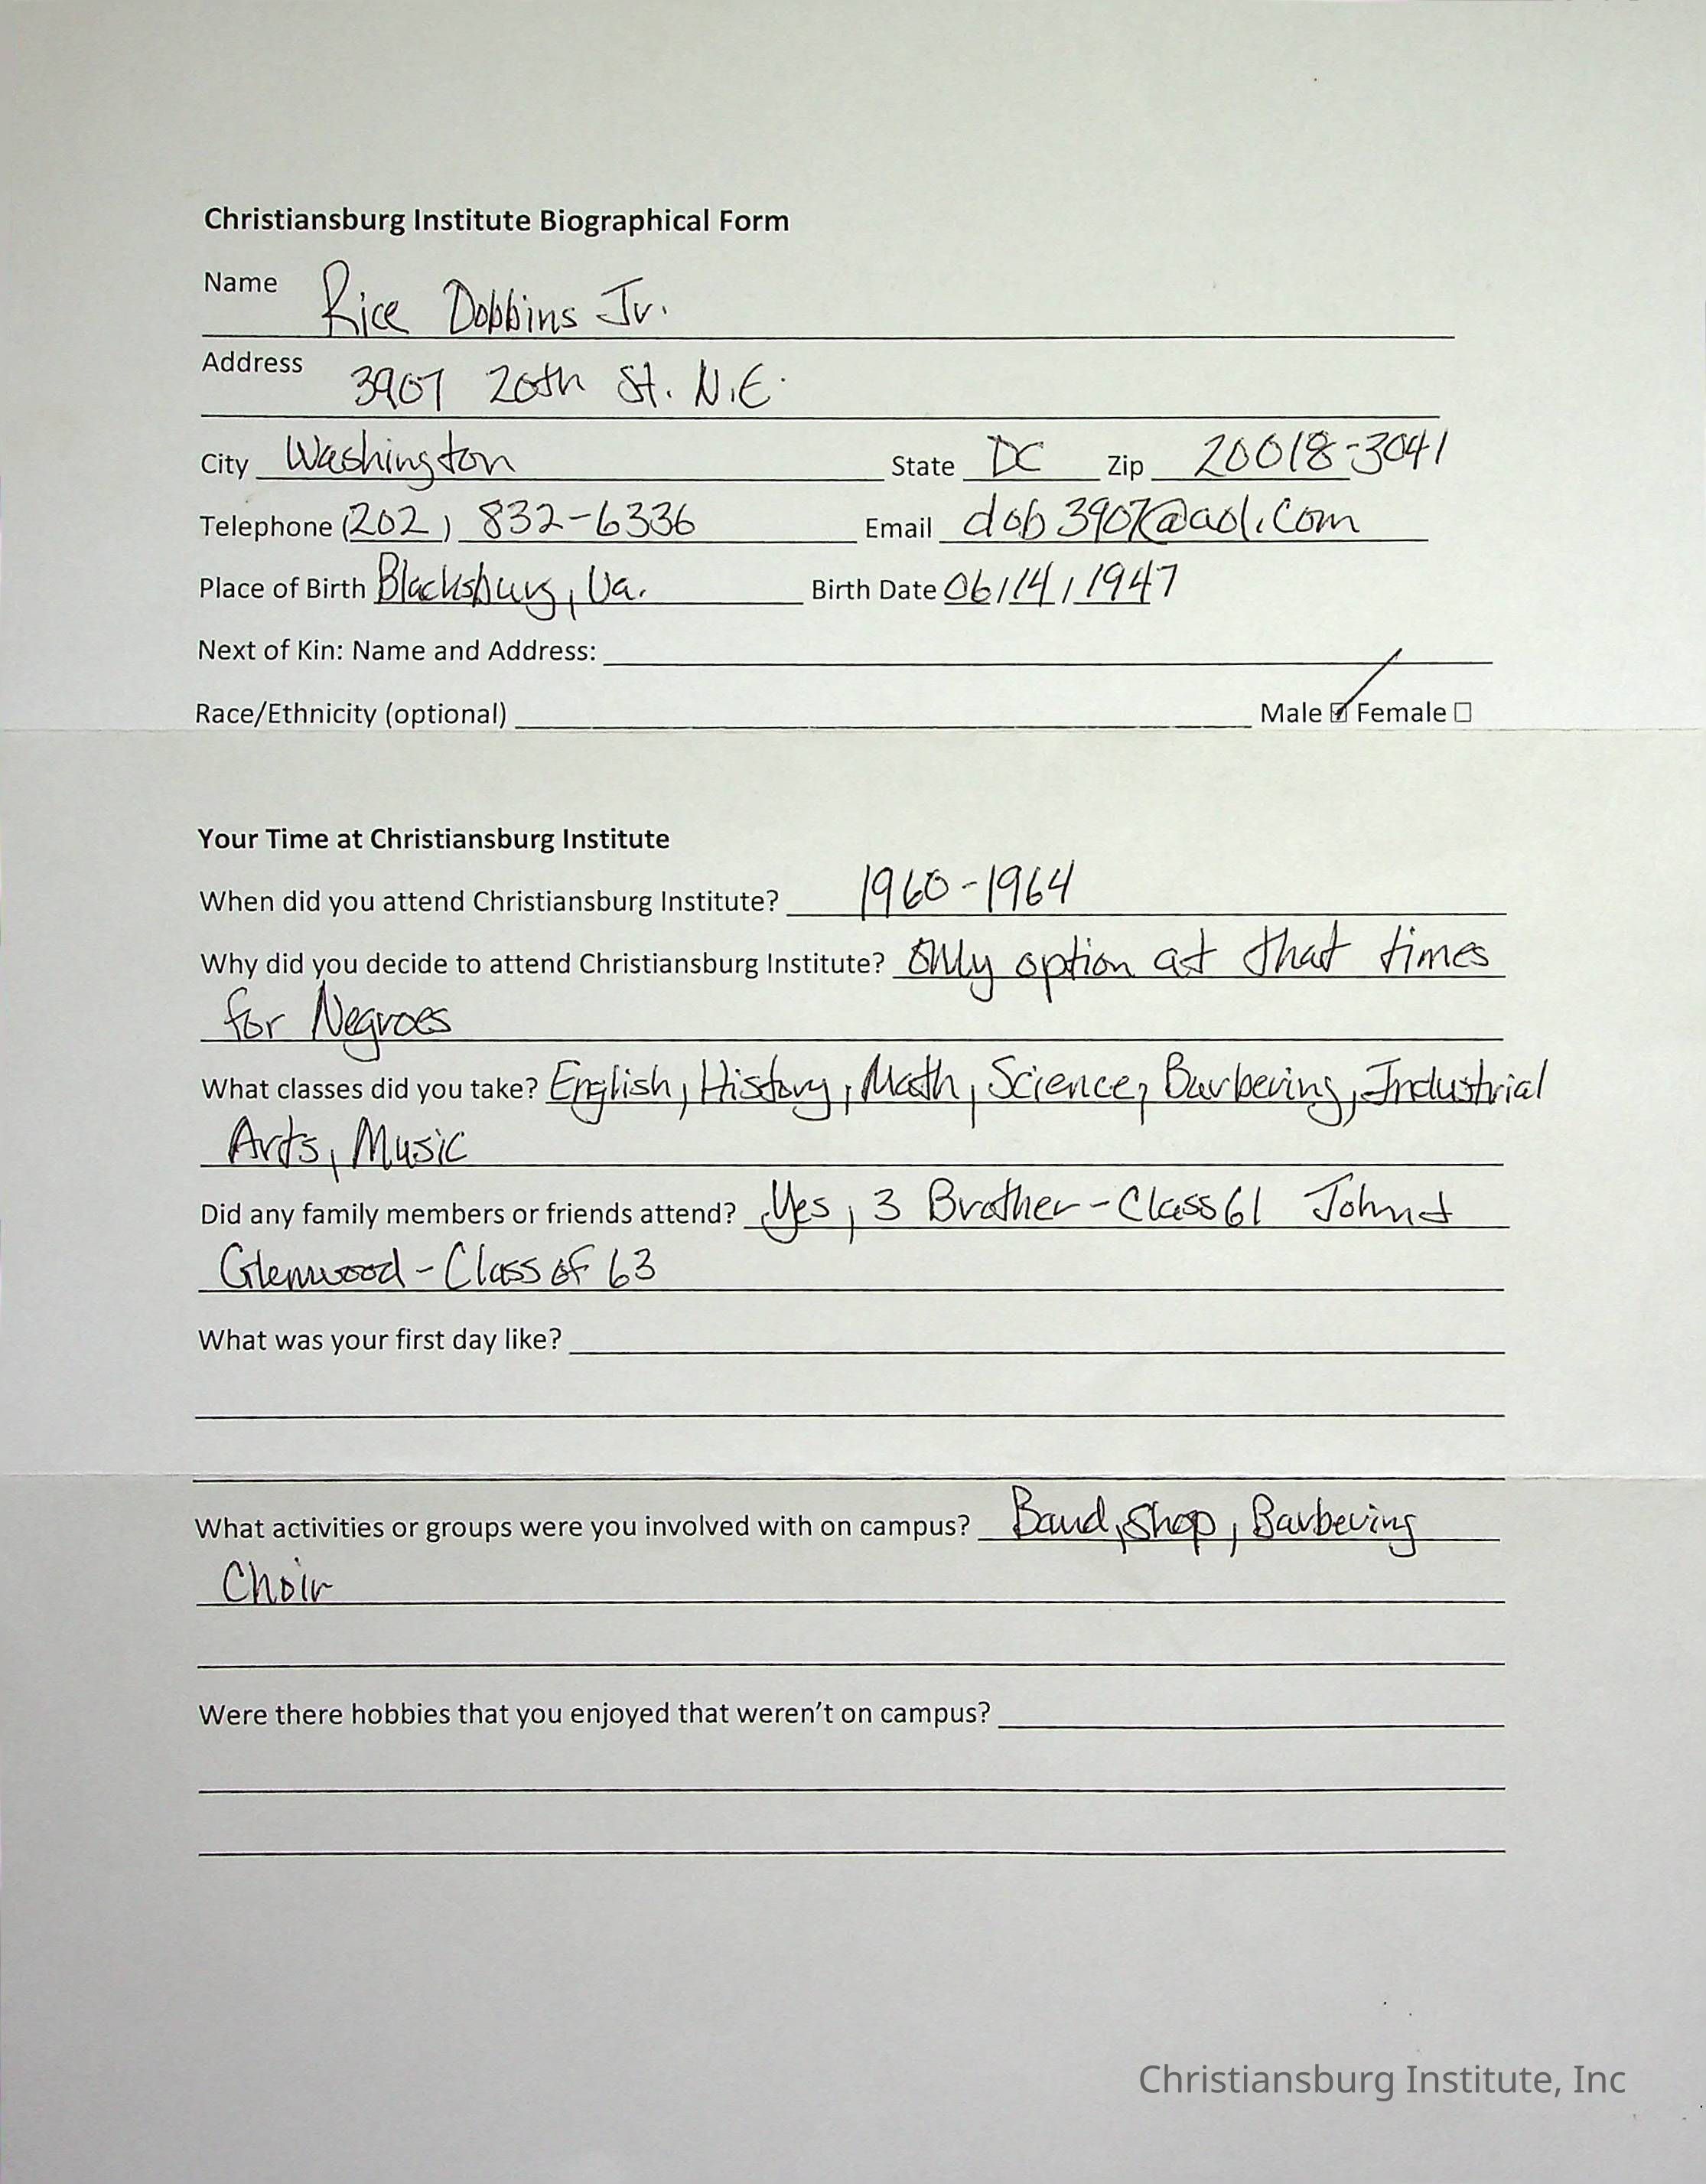 Christiansburg Institute Biographical Form
Name Rice Dobbins Jr.
Address 3907 20th St. N.E.
City Washington State DC Zip 20018-3041
Telephone (202) 832-6336 Email dob3907@aol.com
Place of Birth Blacksburg, Va. Birth Date 06/14/1947
Next of Kin: Name and Address:
Race/Ethnicity (optional) Male ☑ Female ☐
Your Time at Christiansburg Institute
When did you attend Christiansburg Institute? 1960-1964
Why did you decide to attend Christiansburg Institute? Only option at that times
for Negroes
What classes did you take? English, History, Math, Science, Barbering, Industrial
Arts, Music
Did any family members or friends attend? Yes, 3 Brother-Class 61 John &
Glenwood-Class of 63
What was your first day like?
What activities or groups were you involved with on campus? Band, Shop, Barbering
Choir
Were there hobbies that you enjoyed that weren't on campus?
Christiansburg Institute, Inc